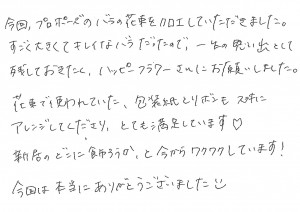 今回、プロポーズのバラの花束を加工していただきました。
すごく大きくてキレイなバラだったので、一生の思い出として
残しておきたく、ハッピーフラワーさんにお願いしました。
花束で使われていた、包装紙とリボンも ステキに
アレンジしてくださり、とても満足しています♡
新居のどこに飾ろうか、と今からワクワクしています！
今回は本当にありがとうございました☺